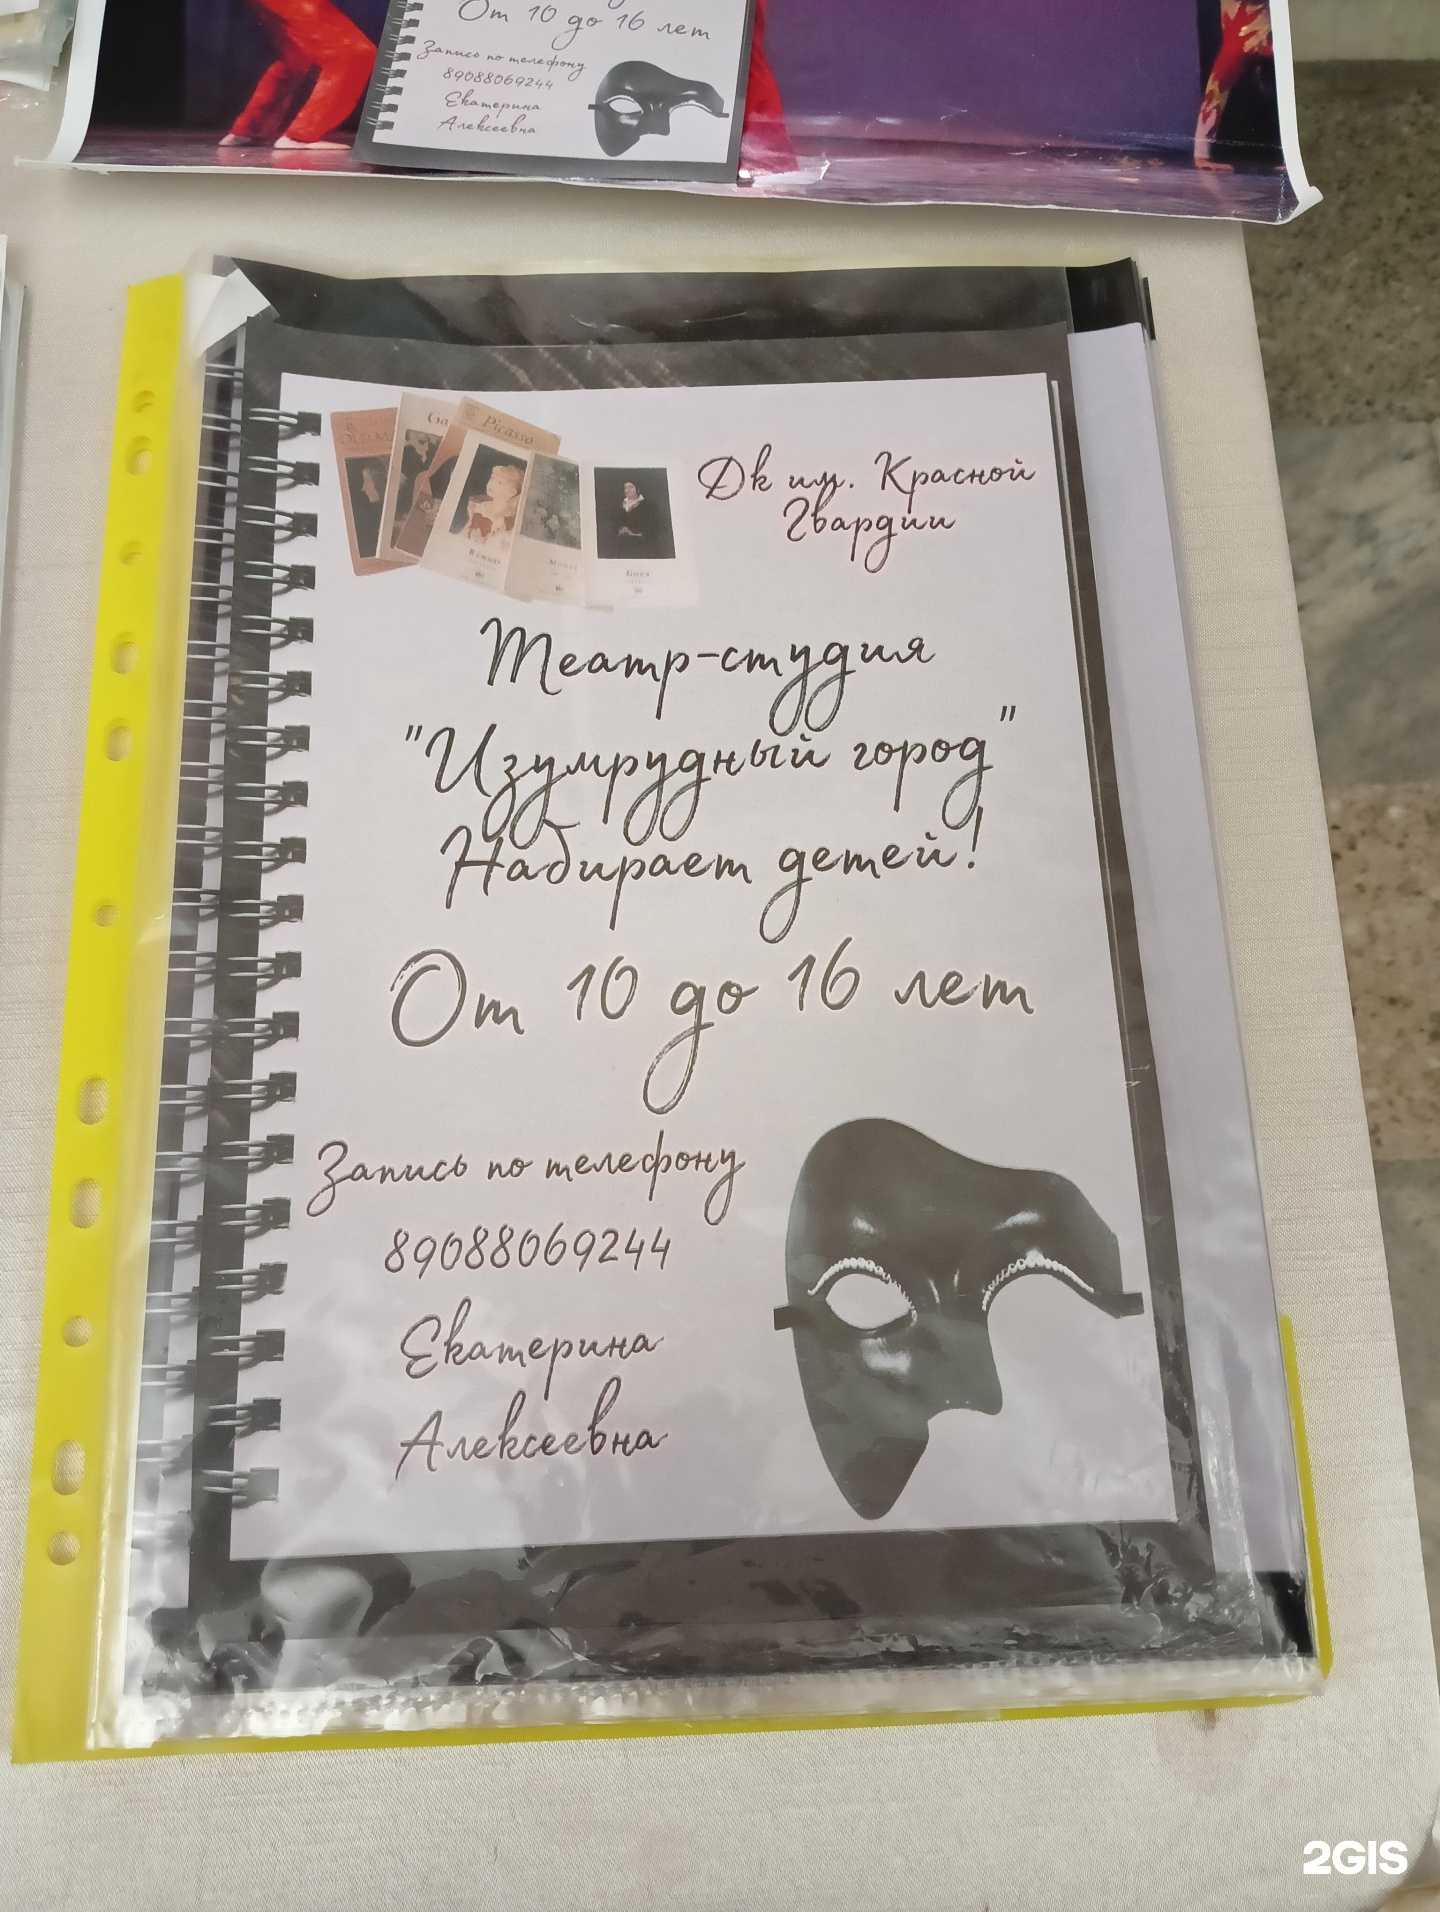 От 10 до 16 лет
Запись по телефону
89088069244
Екатерина
Алексеевна
Picasso
Дк им. Красной
Гвардии
Театр-студия
"Изумрудный город"
Набирает детей!
От 10 до 16 лет
Запись по телефону
89088069244
Екатерина
Алексеевна
2GIS